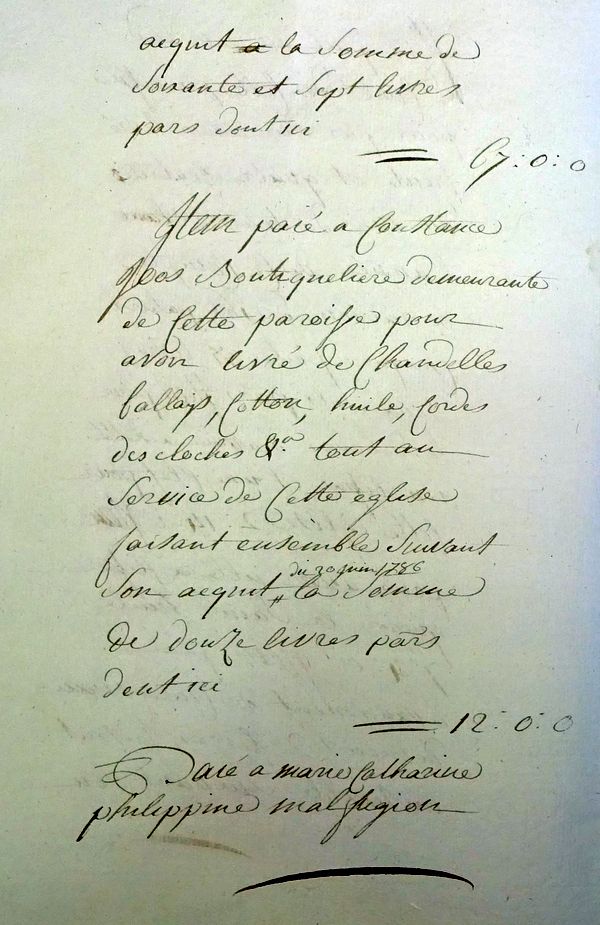 acquit a la Somme de
Soixante et Sept livres
pars dont ici
67 : 0 : 0
Item paié a Constance
Joos Boutiqueliere demeurante
de Cette paroisse pour
avoir livré de Chandelles
ballays, Cotton, huile, Cordes
des cloches &.a tout au
Service de Cette eglise
faisant ensemble Suivant
du 20 juin 1786
Son acquit, la Somme
de douze livres pars
dont ici
12 : 0 : 0
Paié a marie Catharine
philippine